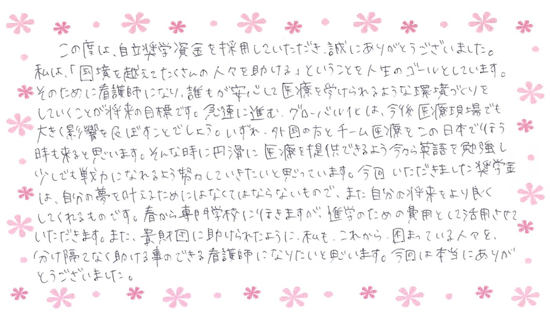 この度は、自立奨学資金を採用していただき、誠にありがとうございました。
私は、「国境を越えてたくさんの人々を助ける」ということを人生のゴールとしています。
そのために看護師になり、誰もが安心して医療を受けられるような環境づくりを
していくことが将来の目標です。急速に進む、グローバル化は、今後医療現場でも
大きく影響を及ぼすことでしょう。いずれ、外国の方とチーム医療をこの日本で行う
時も来ると思います。そんな時に円滑に医療を提供できるよう今から英語を勉強し
少しでも戦力になれるよう努力していきたいと思っています。今回いただきました奨学金
は、自分の夢を叶えるためにはなくてはならないもので、また自分の将来をより良く
してくれるものです。春から専門学校に行きますが、進学のための費用として活用させて
いただきます。また、貴財団に助けられたように、私も、これから、困まっている人々を、
分け隔てなく助ける事のできる看護師になりたいと思います。今回は本当にありが
とうございました。